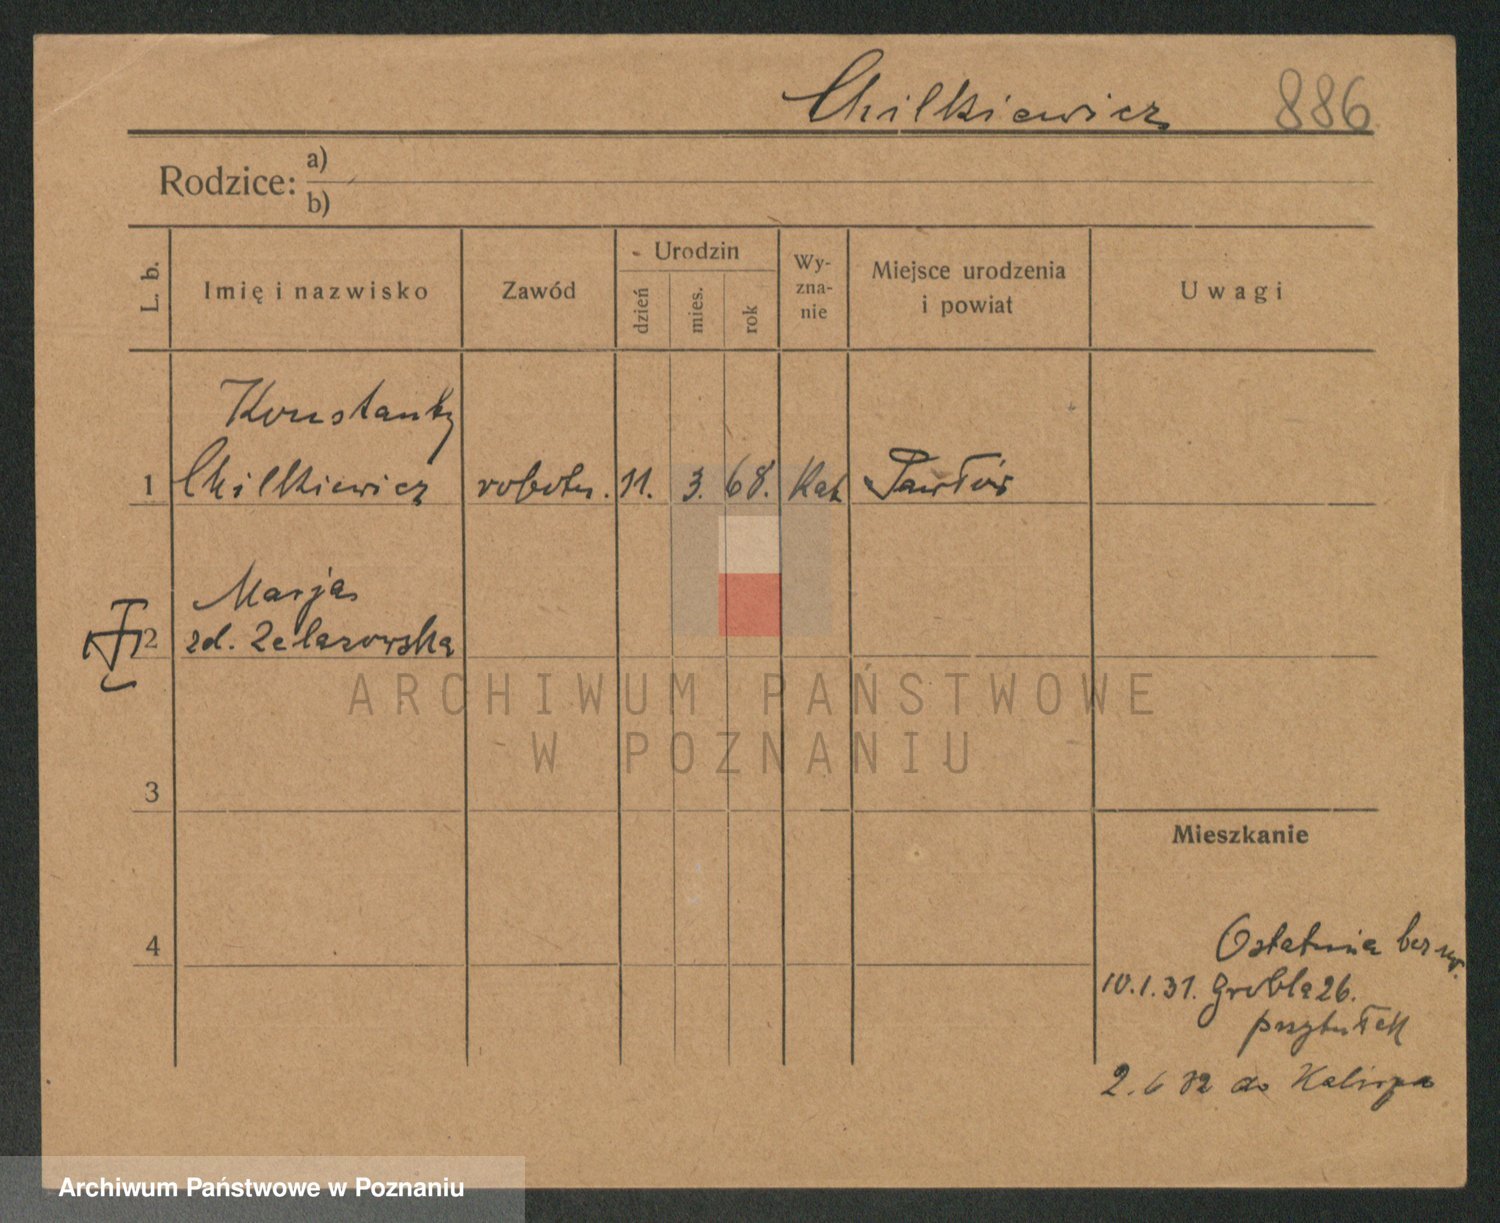 Chilkiewicz 886
Rodzice: a)
b)
L. b.
Imię i nazwisko
Zawód
Urodzin
dzień
mies.
rok
Wy-
zna-
nie
Miejsce urodzenia
i powiat
Uwagi
Konstanty
1 Chilkiewicz robotn. 11. 3. 68. Kat Pawłów
Marja
2 zd. Zelazowska
ARCHIWUM PAŃSTWOWE
W POZNANIU
3
Mieszkanie
4
Ostatnio bez
10.1.31. Grobla 26.
przytułek
2. 6 32 do
Archiwum Państwowe w Poznaniu